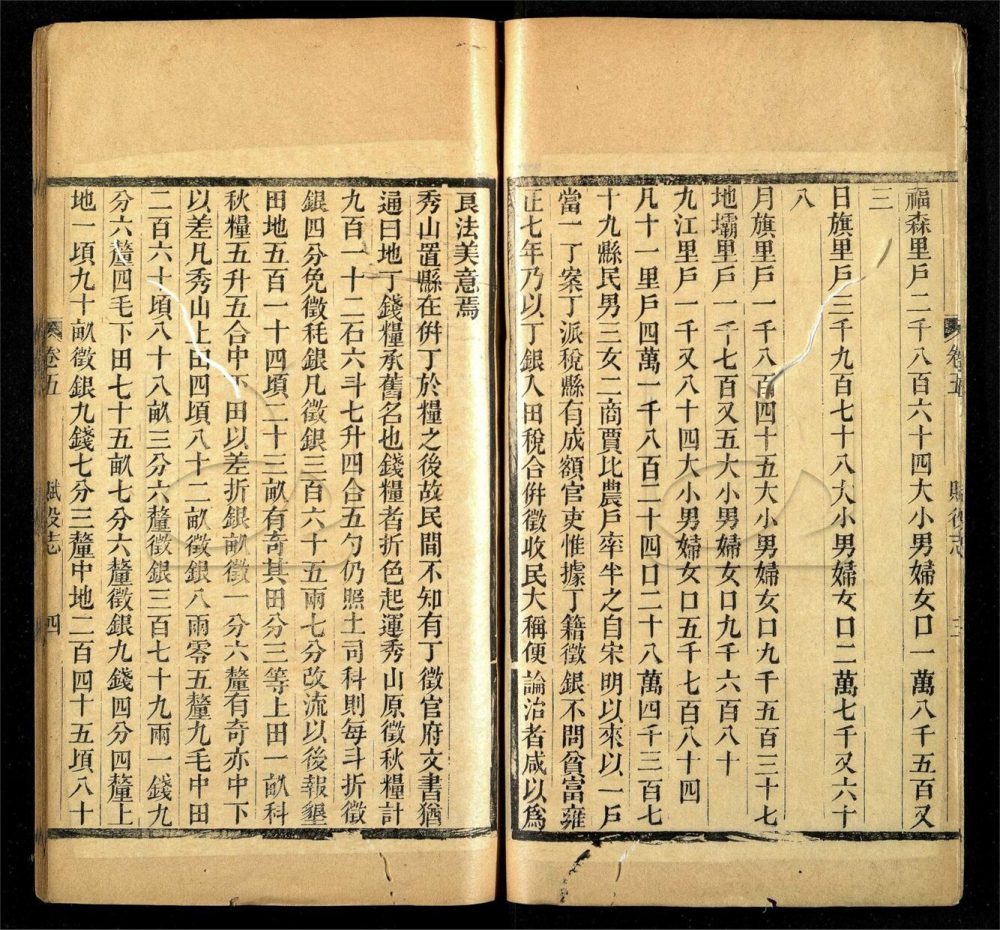 福森里戶二千八百六十四大小男婦女口一萬八千五百又
三
日旗里戶三千九百七十八大小男婦女口二萬七千又六十
八
月旗里戶一千八百四十五大小男婦女口九千五百三十七
地壩里戶一千七百又五大小男婦女口九千六百八十
九江里戶一千又八十四大小男婦女口五千七百八十四
凡十一里戶四萬一千八百二十四口二十八萬四千三百七
十九縣民男三女二商賈比農戶率半之自宋明以來以一戶
當一了案丁派稅縣有成額官吏惟據丁籍徵銀不問貧富雍
正七年乃以丁銀入田稅合併徵收民大稱便論治者咸以爲
卷五
賦役志
三
良法美意焉
秀山置縣在併丁於糧之後故民間不知有丁徵官府文書猶
通曰地丁錢糧承舊名也錢糧者折色起運秀山原徵秋糧計
九百一十二石六斗七升四合五勺仍照土司科則每斗折徵
銀四分免徵耗銀凡徵銀三百六十五兩七分改流以後報墾
田地五百一十四頃二十三畝有奇其田分三等上田一畝科
秋糧五升五合中下田以差折銀畝徵一分六釐有奇亦中下
以差凡秀山上田四頃八十二畝徵銀八兩零五釐九毛中田
二百六十頃八十八畝三分六釐徵銀三百七十九兩一錢九
分六釐四毛下田七十五畝七分六釐徵銀九錢四分四釐上
地一頃九十畝徵銀九錢七分三釐中地二百四十五頃八十
卷五
賦役志
四